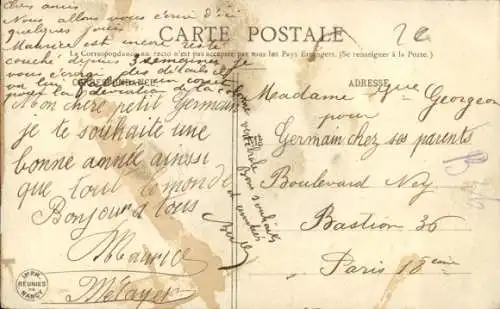 Chers amis
Nous allons vous écrire d'ici
quelques jours
Maurice est encore resté
couché depuis 3 semaines je
vous des détails
on
CARTE POSTALE
2c
La Correspondance au recto n'est pas acceptée par tous les Pays Étrangers. (Se renseigner à la Poste.)
CORRESPONDANCE
ADRESSE
Mon cher petit Germain
je te souhaite une
bonne année ainsi
que tout le monde
Bonjour à tous
Maurice
Métayer
bons souhaits
Madame Gve Georgeon
pour
Germain chez ses parents
Boulevard Ney
Bastion 36
Paris 18 eme
IMPR.
RÉUNIES
DE
NANCY